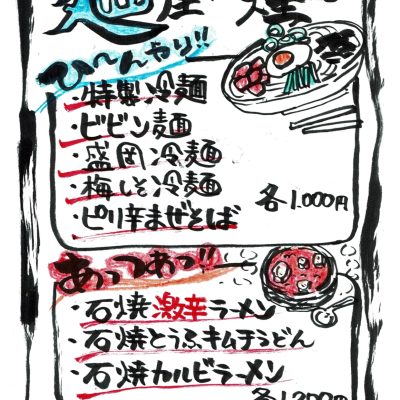 ひ〜んやり!!
・特製冷麺
・ビビン麺
・盛岡冷麺
・梅しそ冷麺
・ピリ辛まぜそば
各1.000円
あっつあつ!!
・石焼激辛ラーメン
・石焼とうふキムチうどん
・石焼カルビラーメン